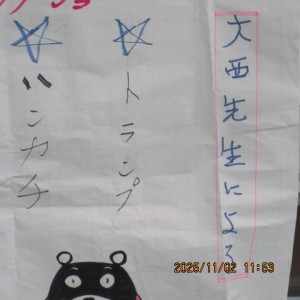 大西先生による
☆トランプ
☆ハンカチ
2025/11/02 11:53